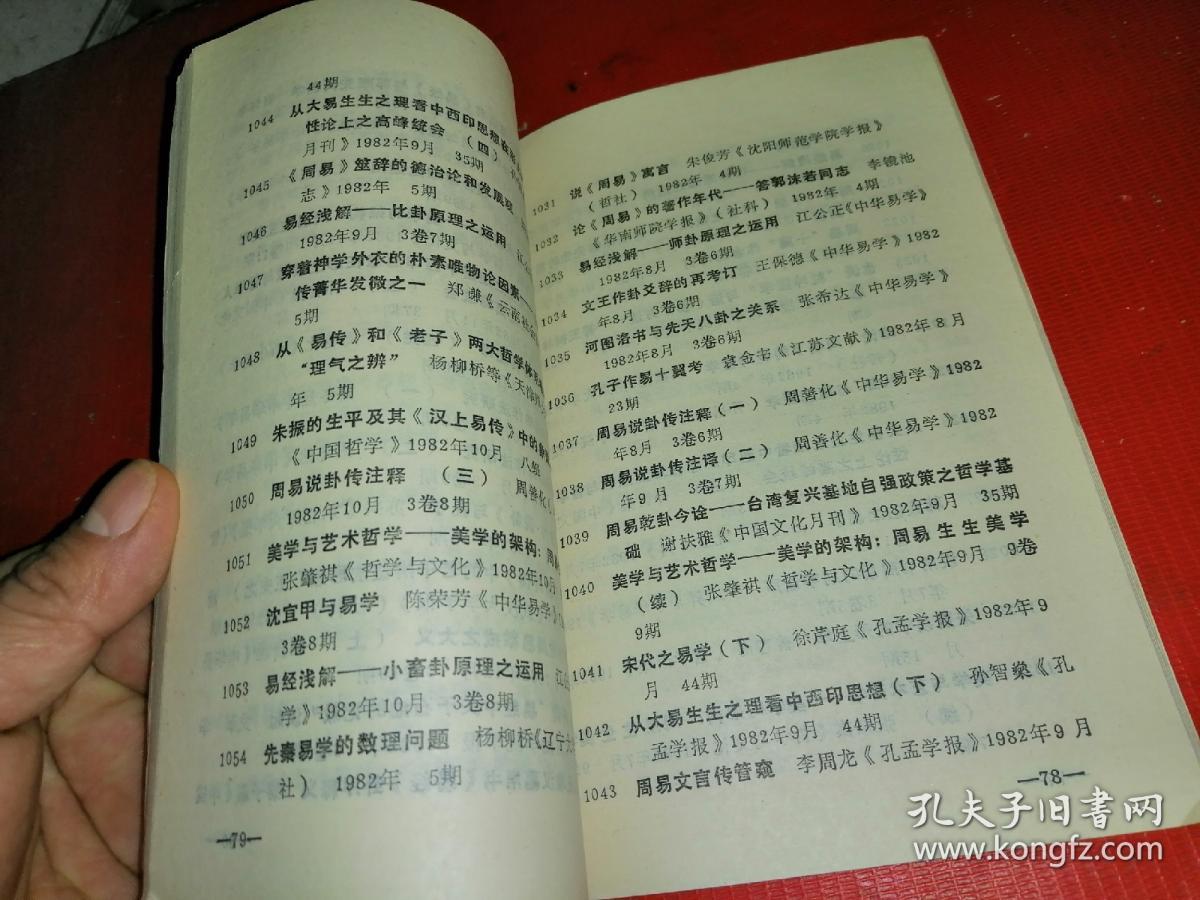 44期
1044 从大易生生之理看中西印思想在
性论上之高峰统会 （四）
月刊》1982年9月 35期
1045 《周易》筮辞的德治论和发展观
志》1982年 5期
1046 易经浅解——比卦原理之运用
1982年9月 3卷7期
1047 穿着神学外衣的朴素唯物论因素
传菁华发微之一 郑谦《云南社会
5期
1048 从《易传》和《老子》两大哲学体系
“理气之辨” 杨柳桥等《天津
年 5期
1049 朱振的生平及其《汉上易传》中的
《中国哲学》1982年10月 八辑
1050 周易说卦传注释 （三） 周善化
1982年10月 3卷8期
1051 美学与艺术哲学——美学的架构：周
张肇祺《哲学与文化》1982年10月
1052 沈宜甲与易学 陈荣芳《中华易学》
3卷8期
1053 易经浅解——小畜卦原理之运用 江
学》1982年10月 3卷8期
1054 先秦易学的数理问题 杨柳桥《辽宁大
社） 1982年 5期
—79—
1031 说《周易》寓言 朱俊芳《沈阳师范学院学报》
（哲社） 1982年 4期
1032 论《周易》的著作年代——答郭沫若同志 李镜池
《华南师院学报》（社科） 1982年 4期
1033 易经浅解——师卦原理之运用 江公正《中华易学》
1982年8月 3卷6期
1034 文王作卦爻辞的再考订 王保德《中华易学》1982
年8月 3卷6期
1035 河图洛书与先天八卦之关系 张希达《中华易学》
1982年8月 3卷6期
1036 孔子作易十翼考 袁金书《江苏文献》1982年8月
23期
1037 周易说卦传注释（一） 周善化《中华易学》1982
年8月 3卷6期
1038 周易说卦传注译（二） 周善化《中华易学》1982
年9月 3卷7期
1039 周易乾卦今诠——台湾复兴基地自强政策之哲学基
础 谢扶雅《中国文化月刊》1982年9月 35期
1040 美学与艺术哲学——美学的架构：周易生生美学
（续） 张肇祺《哲学与文化》1982年9月 9卷
9期
1041 宋代之易学（下） 徐芹庭《孔孟学报》1982年9
月 44期
1042 从大易生生之理看中西印思想（下） 孙智燊《孔
孟学报》1982年9月 44期
1043 周易文言传管窥 李周龙《孔孟学报》1982年9月
—78—
孔夫子旧书网
www.kongfz.com